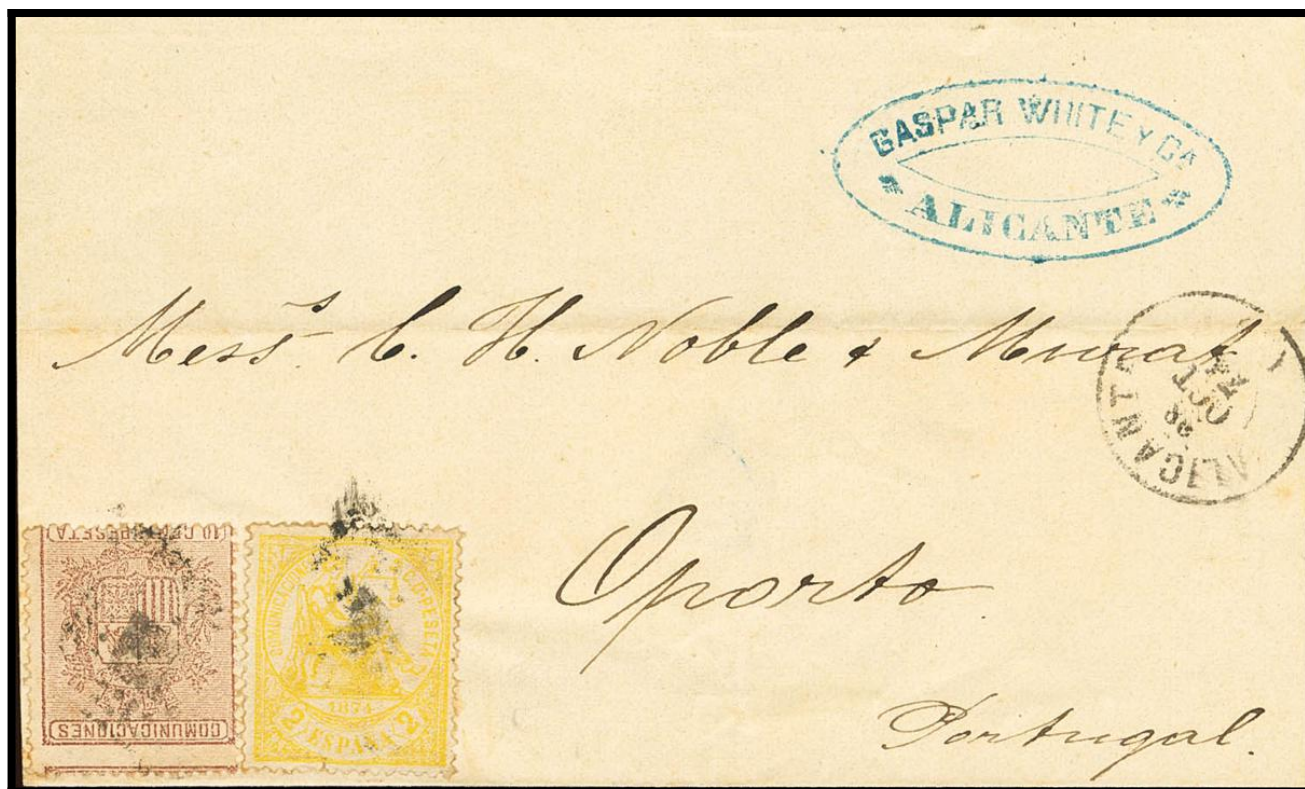 GASPAR WHITE Y CA
ALICANTE
Mess.s C. H. Noble & Murat
ALICANTE
OCT
74
Oporto
Portugal.
10 CENT PESETA
COMUNICACIONES
COMUNICACIONES
PESETA
1874
2 ESPAÑA 2